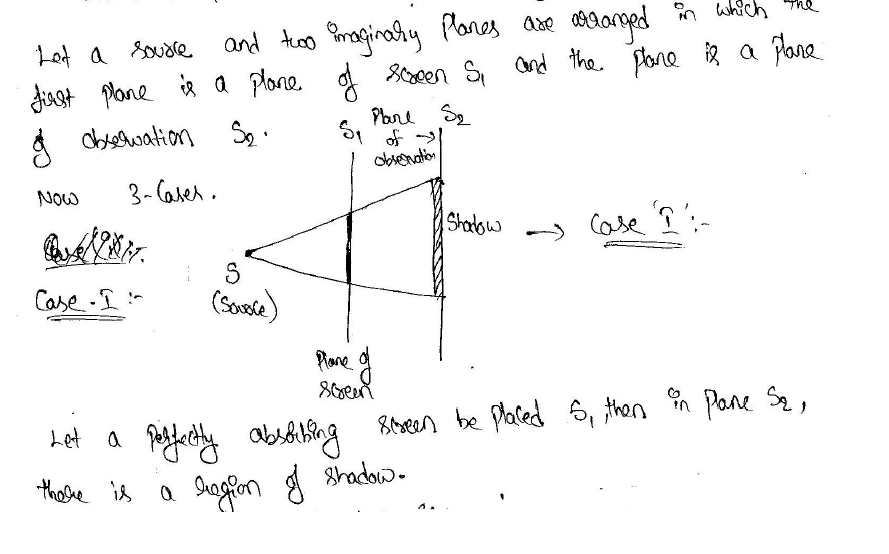 Let a source and two imaginary Planes are arranged in which the
first plane is a plane of screen S1 and the plane is a plane
of observation S2.
S1 Plane of observation → S2
Now 3-Cases.
Shadow → Case 'I':-
Case-I :-
S
(Source)
Plane of
screen
Let a perfectly absorbing screen be placed S1, then in plane S2,
there is a region of shadow.